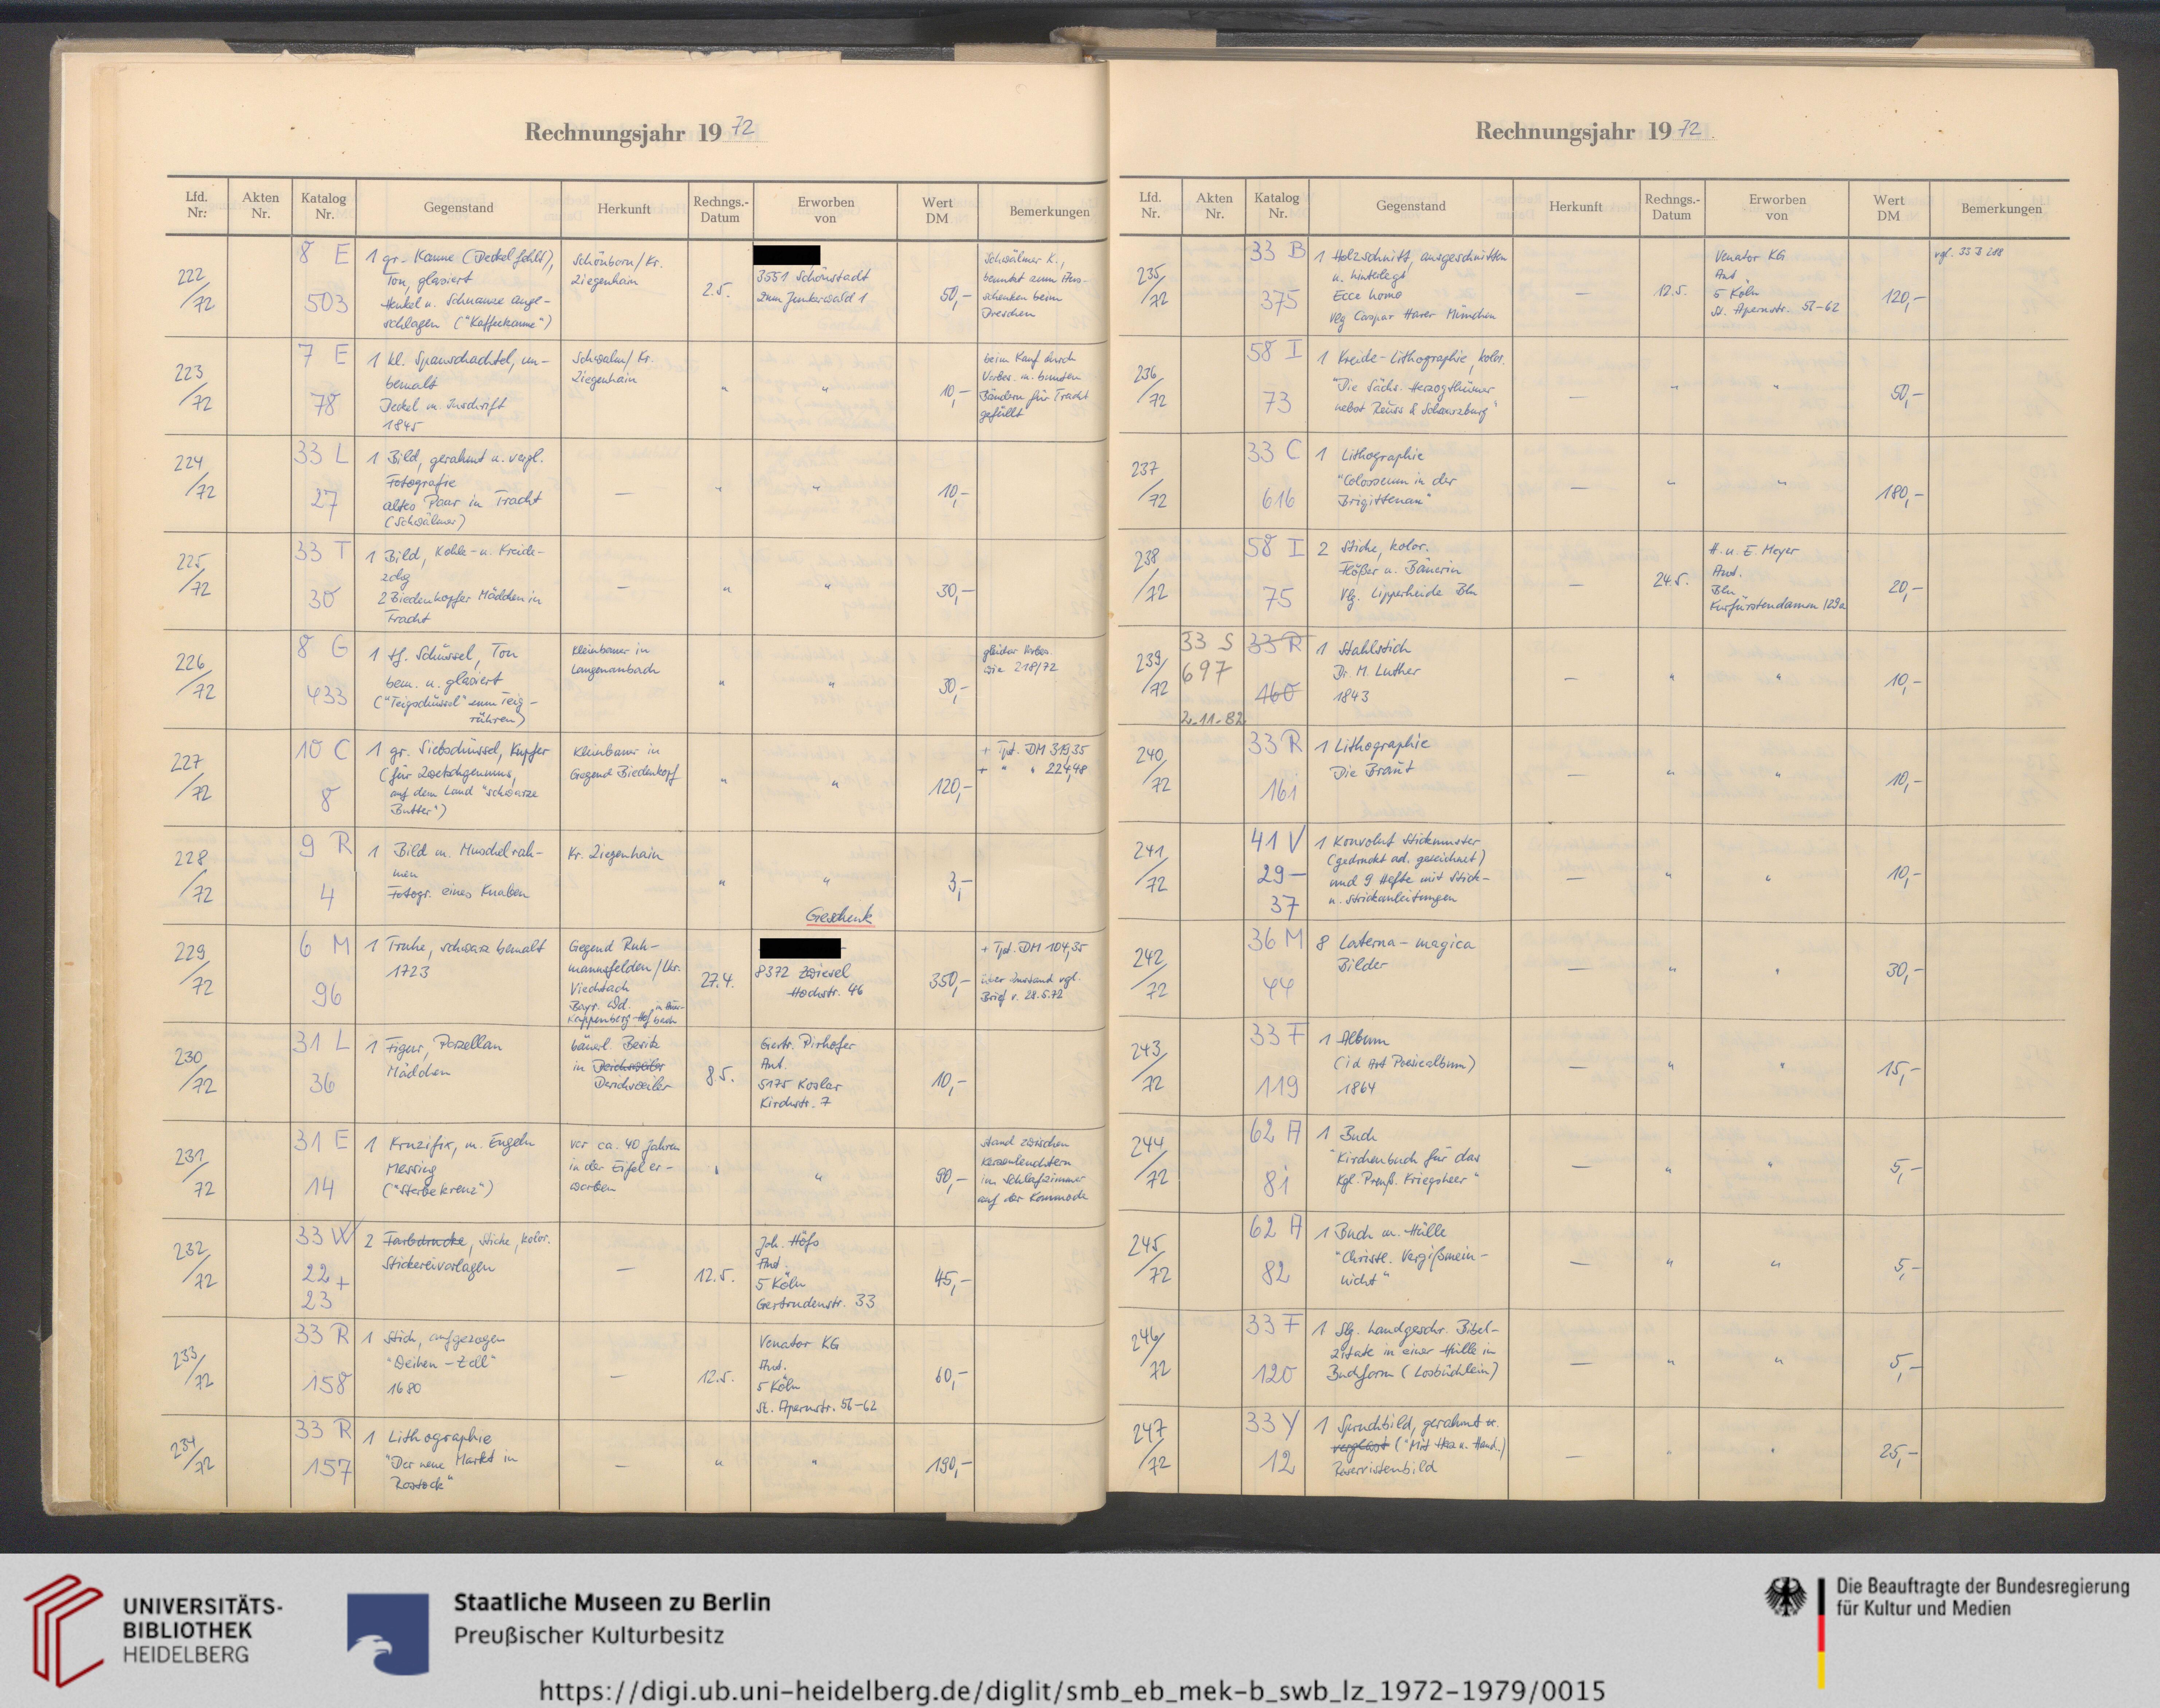 Rechnungsjahr 19 72
Lfd. Nr: Akten Nr. Katalog Nr. Gegenstand Herkunft Rechngs.-Datum Erworben von Wert DM Bemerkungen
222/72
8 E
503
1 gr. Kanne (Deckel fehlt),
Ton, glasiert
Henkel u. Schnauze ange-
schlagen ("Kaffeekanne")
Schönborn/Kr.
Ziegenhain
2.5.
3551 Schönstadt
Zum Junkerwald 1
50,-
Schwälmer K.,
benutzt zum Aus-
schenken beim
Dreschen
223/72
7 E
78
1 kl. Spanschachtel, un-
bemalt
Deckel m. Inschrift
1845
Schwalm/Kr.
Ziegenhain
"
"
10,-
beim Kauf durch
Vorbes. m. bunten
Bändern für Tracht
gefüllt
224/72
33 L
27
1 Bild, gerahmt u. vergl.
Fotografie
altes Paar in Tracht
(Schwälmer)
—
"
"
10,-
225/72
33 T
30
1 Bild, Kohle- u. Kreide-
zchg
2 Biedenkopfer Mädchen in
Tracht
—
"
"
30,-
226/72
8 G
433
1 tf. Schüssel, Ton
bem. u. glasiert
("Teigschüssel" zum Teig-
rühren)
Kleinbauer in
Langenaubach
"
"
30,-
gleicher Vorbes.
wie 218/72
227/72
10 C
8
1 gr. Siebschüssel, Kupfer
(für Zwetschgenmus,
auf dem Land "schwarze
Butter")
Kleinbauer in
Gegend Biedenkopf
"
"
120,-
+ Tpt. DM 319,35
+ " " 224,48
228/72
9 R
4
1 Bild m. Muschelrah-
men
Fotogr. eines Knaben
Kr. Ziegenhain
"
"
3,-
Geschenk
229/72
6 M
96
1 Truhe, schwarz bemalt
1723
Gegend Ruh-
mannsfelden/Lkr.
Viechtach
Bayr. Wd.
Kappenberg-Hof
27.4.
8372 Zwiesel
Hochstr. 46
350,-
+ Tpt. DM 104,35
über Zustand vgl.
Brief v. 28.5.72
230/72
31 L
36
1 Figur, Porzellan
Mädchen
bäuerl. Besitz
in Deichsweiler
Derichsweiler
8.5.
Gertr. Pirhofer
Ant.
5175 Koslar
Kirchstr. 7
10,-
231/72
31 E
14
1 Kruzifix, m. Engeln
Messing
("Sterbekreuz")
vor ca. 40 Jahren
in der Eifel er-
worben
"
"
90,-
stand zwischen
Kerzenleuchtern
im Schlafzimmer
auf der Kommode
232/72
33 W
22 +
23
2 Farbdrucke, Stiche, kolor.
Stickereivorlagen
—
12.5.
Joh. Höfs
Ant.
5 Köln
Gertrudenstr. 33
45,-
233/72
33 R
158
1 Stich, aufgezogen
"Weihen-Zell"
1680
—
12.5.
Venator KG
Ant.
5 Köln
St. Apernstr. 56-62
60,-
234/72
33 R
157
1 Lithographie
"Der neue Markt in
Rostock"
—
"
"
190,-
Rechnungsjahr 19 72
Lfd. Nr. Akten Nr. Katalog Nr. Gegenstand Herkunft Rechngs.-Datum Erworben von Wert DM Bemerkungen
235/72
33 B
375
1 Holzschnitt, ausgeschnitten
u. hinterlegt
Ecce homo
Vlg Caspar Herer München
—
12.5.
Venator KG
Ant
5 Köln
St. Apernstr. 56-62
120,-
vgl. 33 B 288
236/72
58 I
73
1 Kreide-Lithographie, kolor.
"Die Sächs. Herzogthümer
nebst Reuss & Schwarzburg"
—
"
"
50,-
237/72
33 C
616
1 Lithographie
"Colosseum in der
Brigittenau"
—
"
"
180,-
238/72
58 I
75
2 Stiche, kolor.
Flößer u. Bäuerin
Vlg. Lipperheide Bln
—
24.5.
H. u. E. Meyer
Ant.
Bln
Kurfürstendamm 129a
20,-
239/72
33 S
697
2.11.82
33 R
460
1 Stahlstich
Dr. M. Luther
1843
—
"
"
10,-
240/72
33 R
161
1 Lithographie
Die Braut
—
"
"
10,-
241/72
41 V
29-
37
1 Konvolut Stickmuster
(gedruckt od. gezeichnet)
und 9 Hefte mit Stick-
u. Strickanleitungen
—
"
"
10,-
242/72
36 M
44
8 Laterna-magica
Bilder
—
"
"
30,-
243/72
33 F
119
1 Album
(i d Art Poesiealbum)
1864
—
"
"
15,-
244/72
62 A
81
1 Buch
"Kirchenbuch für das
Kgl. Preuß. Kriegsheer"
—
"
"
5,-
245/72
62 A
82
1 Buch m. Hülle
"Christl. Vergißmein-
nicht"
—
"
"
5,-
246/72
33 F
120
1 Slg. handgeschr. Bibel-
zitate in einer Hülle in
Buchform (Losbüchlein)
—
"
"
5,-
247/72
33 Y
12
1 Spruchbild, gerahmt u.
verglast ("Mit Herz u. Hand.)
Reservistenbild
—
"
"
25,-
UNIVERSITÄTS-
BIBLIOTHEK
HEIDELBERG
Staatliche Museen zu Berlin
Preußischer Kulturbesitz
Die Beauftragte der Bundesregierung
für Kultur und Medien
https://digi.ub.uni-heidelberg.de/diglit/smb_eb_mek-b_swb_lz_1972-1979/0015